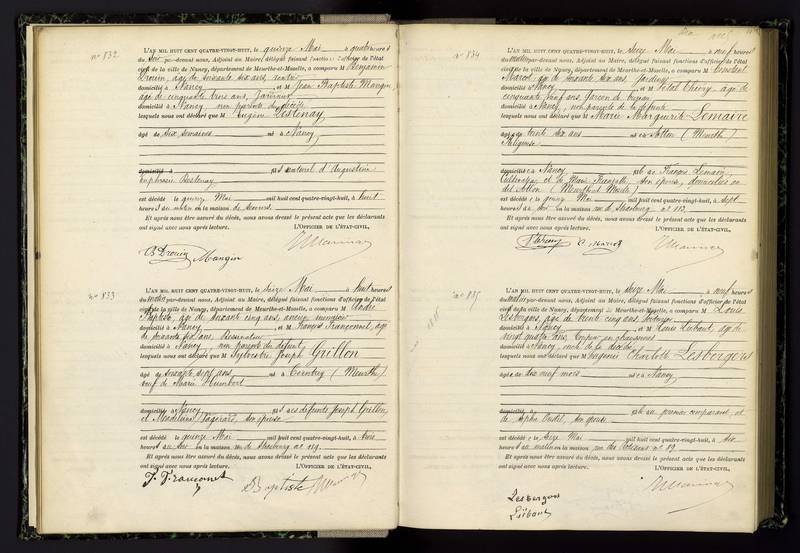 nº 832
L'AN MIL HUIT CENT QUATRE-VINGT-HUIT, le quinze Mai à quatre heures
du soir par-devant nous, Adjoint au Maire, délégué faisant fonctions d'officier de l'état
civil de la ville de Nancy, département de Meurthe-et-Moselle, a comparu M Benjamin
Drouin, âgé de soixante six ans, rentier
domicilié à Nancy, et M Jean Baptiste Mangin
âgé de cinquante trois ans, Journalier
domicilié à Nancy non parents du décédé
lesquels nous ont déclaré que M Eugène Destenay
âgé de six semaines né à Nancy
domicilié à fils naturel d'Augustine
Euphrasie Destenay
est décédé le quinze Mai mil huit cent quatre-vingt-huit, à huit
heures du matin en la maison de secours.
Et après nous être assuré du décès, nous avons dressé le présent acte que les déclarants
ont signé avec nous après lecture. L'OFFICIER DE L'ÉTAT-CIVIL,
B Drouin Mangin
nº 833
L'AN MIL HUIT CENT QUATRE-VINGT-HUIT, le seize Mai à huit heures
du matin par-devant nous, Adjoint au Maire, délégué faisant fonctions d'officier de l'état
civil de la ville de Nancy, département de Meurthe-et-Moselle, a comparu M André
Baptiste, âgé de soixante cinq ans, ancien
domicilié à Nancy, et M François Françonnet, âgé
de soixante six ans, Dessinateur
domicilié à Nancy, non parents du défunt,
lesquels nous ont déclaré que M Sylvestre Joseph Grillon
âgé de soixante sept ans né à (Meurthe)
veuf de Marie Humbert
domicilié à Nancy fils des défunts Joseph Grillon
et Madeleine son épouse
est décédé le quinze Mai mil huit cent quatre-vingt-huit, à trois
heures du soir en la maison rue de Strasbourg nº 119.
Et après nous être assuré du décès, nous avons dressé le présent acte que les déclarants
ont signé avec nous après lecture. L'OFFICIER DE L'ÉTAT-CIVIL,
F. Françonnet Baptiste
nº 834
L'AN MIL HUIT CENT QUATRE-VINGT-HUIT, le seize Mai à neuf heures
du matin par-devant nous, Adjoint au Maire, délégué faisant fonctions d'officier de l'état
civil de la ville de Nancy, département de Meurthe-et-Moselle, a comparu M Constant
Marcot, âgé de soixante six ans, Jardinier
domicilié à Nancy, et M Vital Thiéry, âgé de
cinquante ans, Garçon de bureau
domicilié à Nancy, non parents de la défunte
lesquels nous ont déclaré que M Marie Marguerite Lemaire
âgée de trente six ans née à (Meurthe)
Religieuse
domiciliée à Nancy fille de François Lemaire,
Cultivateur et de Marie son épouse, domiciliés au
dit (Meurthe et Moselle)
est décédée le quinze Mai mil huit cent quatre-vingt-huit, à sept
heures du soir en la maison rue de Strasbourg, nº 113.
Et après nous être assuré du décès, nous avons dressé le présent acte que les déclarants
ont signé avec nous après lecture. L'OFFICIER DE L'ÉTAT-CIVIL,
nº 835
L'AN MIL HUIT CENT QUATRE-VINGT-HUIT, le seize Mai à neuf heures
du matin par-devant nous, Adjoint au Maire, délégué faisant fonctions d'officier de l'état
civil de la ville de Nancy, département de Meurthe-et-Moselle, a comparu M Louis
Lesbergers, âgé de trente cinq ans,
domicilié à Nancy, et M Louis Luibout, âgé de
vingt quatre ans, Coupeur en chaussures
domicilié à Nancy, de la décédée
lesquels nous ont déclaré que M Eugénie Charlotte Lesbergers
âgée de dix neuf mois née à Nancy
domiciliée à fille du premier comparant, et
de Sophie son épouse
est décédée le seize Mai mil huit cent quatre-vingt-huit, à six
heures du matin en la maison rue des nº 89.
Et après nous être assuré du décès, nous avons dressé le présent acte que les déclarants
ont signé avec nous après lecture. L'OFFICIER DE L'ÉTAT-CIVIL,
Lesbergers
Luibout